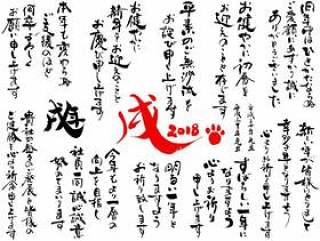 旧年中はひとかたならぬ
ご愛顧にあずかり誠に
ありがとうございました
お健やかに初春を
お迎えのことと存じます
平素のご無沙汰を
お詫び申し上げます
お健やかに
新年をお迎えのことと
お慶び申し上げます
本年も変わらぬ
ご支援のほど
何卒よろしく
お願い申し上げます
新しい年が皆様にとりまして
幸多き年となりますよう
心よりお祈り申し上げます
すばらしい一年に
なりますよう
心よりお祈り
申し上げます
明るい一年と
なりますように
お祈り致します
戌
2018
今年もより一層の
向上を目指し
社員一同誠心誠意
努めてまいります
戌
貴社の益々のご発展と皆様の
ご健勝を心より祈念申し上げます